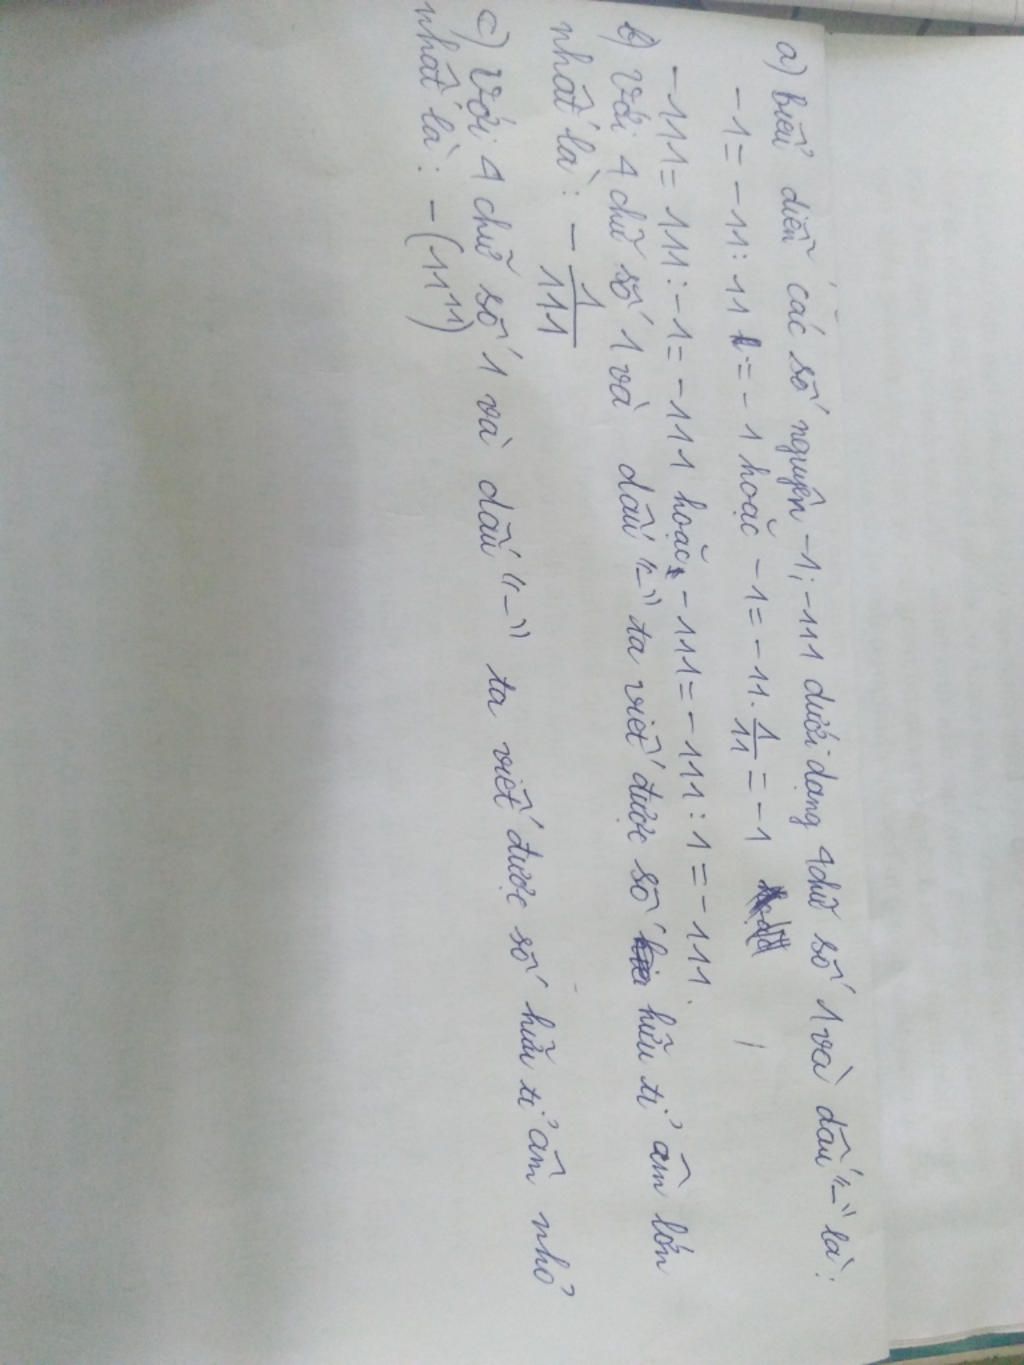 a) biểu diễn các số nguyên -1; -111 dưới dạng 4 chữ số 1 và dấu "-" là:
-1 = -11 : 11 = -1 hoặc -1 = -11 . 1/11 = -1
-111 = 111 : -1 = -111 hoặc -111 = -111 : 1 = -111.
b) Với 4 chữ số 1 và dấu "-" ta viết được số hữu tỉ âm lớn
nhất là: - 1/111
c) Với 4 chữ số 1 và dấu "-" ta viết được số hữu tỉ âm nhỏ
nhất là: -(11¹¹)